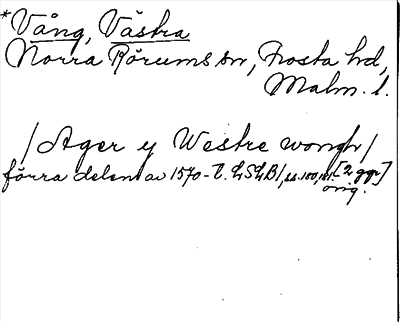 *Vång, Västra
Norra Rörums sn, Frosta hd,
Malm. l.
/Ager y Westre wongh/
förra delen av 1570-t. LSLB1, ss. 100, 101. [2 ggr]
orig.